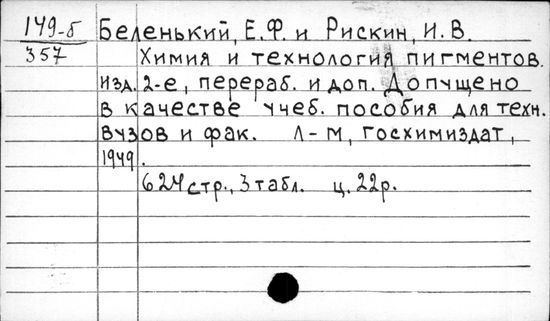 149-б Беленький, Е.Ф. и Рискин, И.В.
357 Химия и технология пигментов.
изд. 2-е, перераб. и доп. Допущено
в качестве учеб. пособия для техн.
вузов и фак. Л-М, Госхимиздат,
1949.
624 стр., 3 табл. ц. 22р.